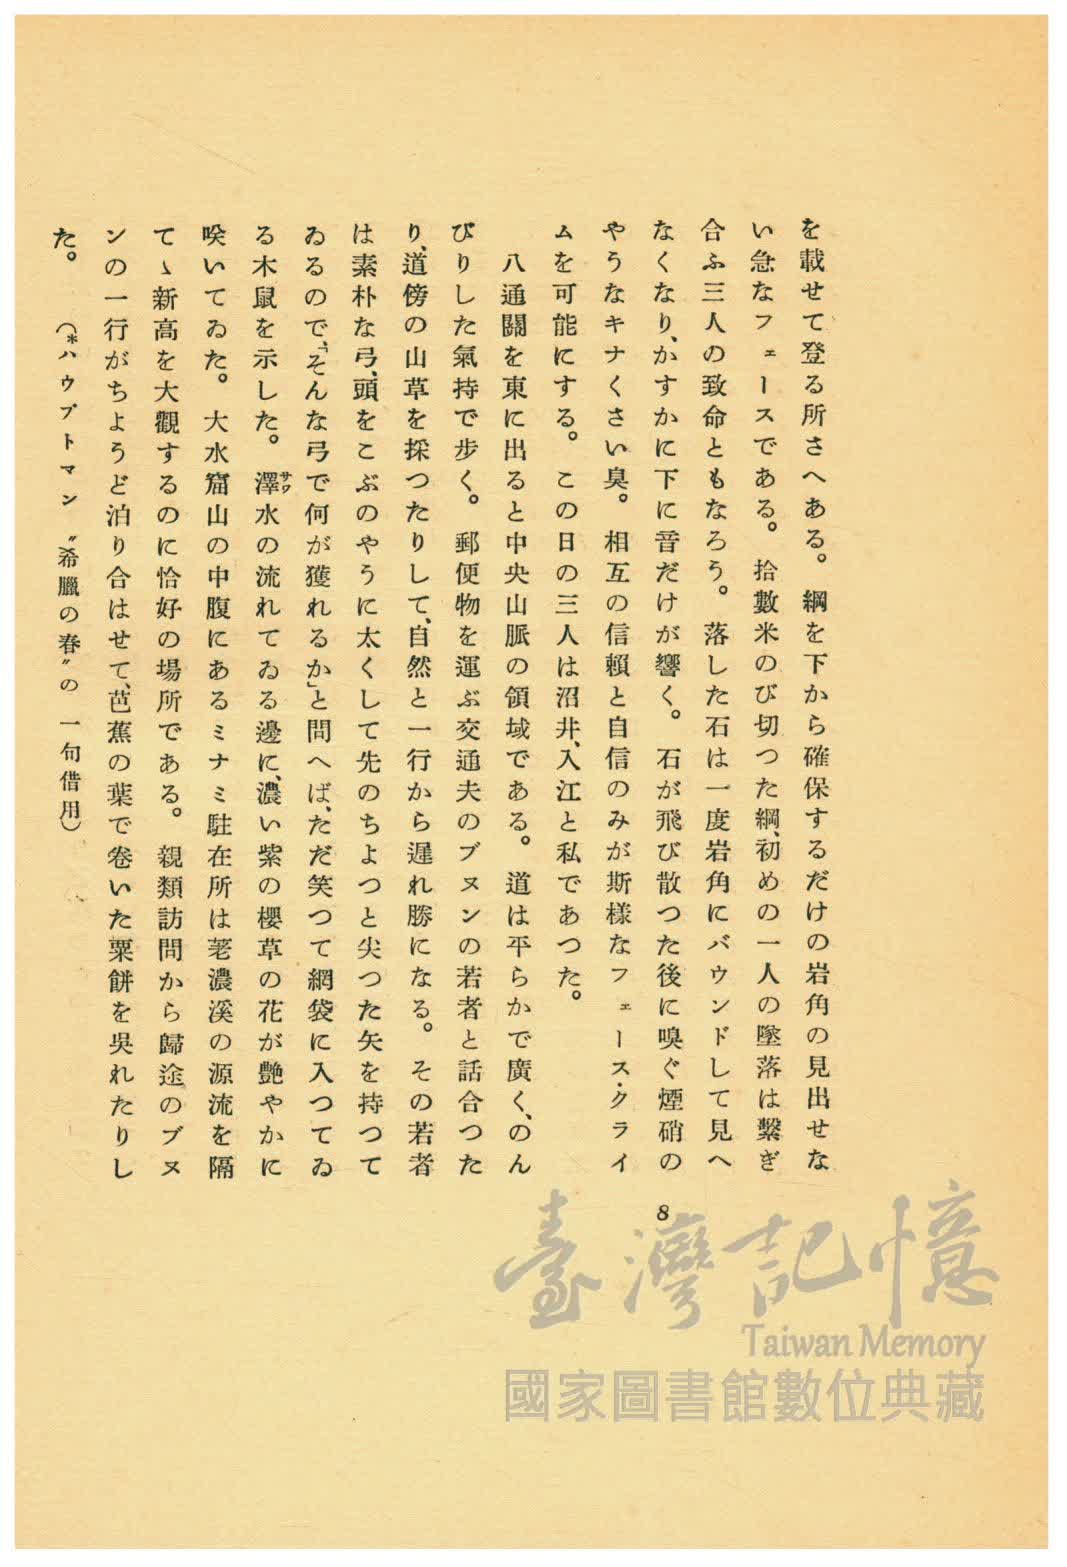 を載せて登る所さへある。綱を下から確保するだけの岩角の見出せな
い急なフェースである。拾數米のび切つた綱、初めの一人の墜落は繫ぎ
合ふ三人の致命ともなろう。落した石は一度岩角にバウンドして見へ
なくなり、かすかに下に音だけが響く。石が飛び散つた後に嗅ぐ煙硝の
やうなキナくさい臭。相互の信賴と自信のみが斯樣なフェース・クライ
ムを可能にする。この日の三人は沼井、入江と私であつた。
八通關を東に出ると中央山脈の領域である。道は平らかで廣く、のん
びりした氣持で步く。郵便物を運ぶ交通夫のブヌンの若者と話合つた
り、道傍の山草を採つたりして、自然と一行から遲れ勝になる。その若者
は素朴な弓、頭をこぶのやうに太くして先のちよつと尖つた矢を持つて
ゐるので、「そんな弓で何が獲れるか」と問へば、ただ笑つて網袋に入つてゐ
る木鼠を示した。澤水の流れてゐる邊に、濃い紫の櫻草の花が艷やかに
サワ
咲いてゐた。大水窟山の中腹にあるミナミ駐在所は荖濃溪の源流を隔
てゝ新高を大觀するのに恰好の場所である。親類訪問から歸途のブヌ
ンの一行がちようど泊り合はせて、芭蕉の葉で卷いた粟餅を吳れたりし
た。 （*ハウプトマン〝希臘の春〟の一句借用）
8
臺灣記憶
Taiwan Memory
國家圖書館數位典藏